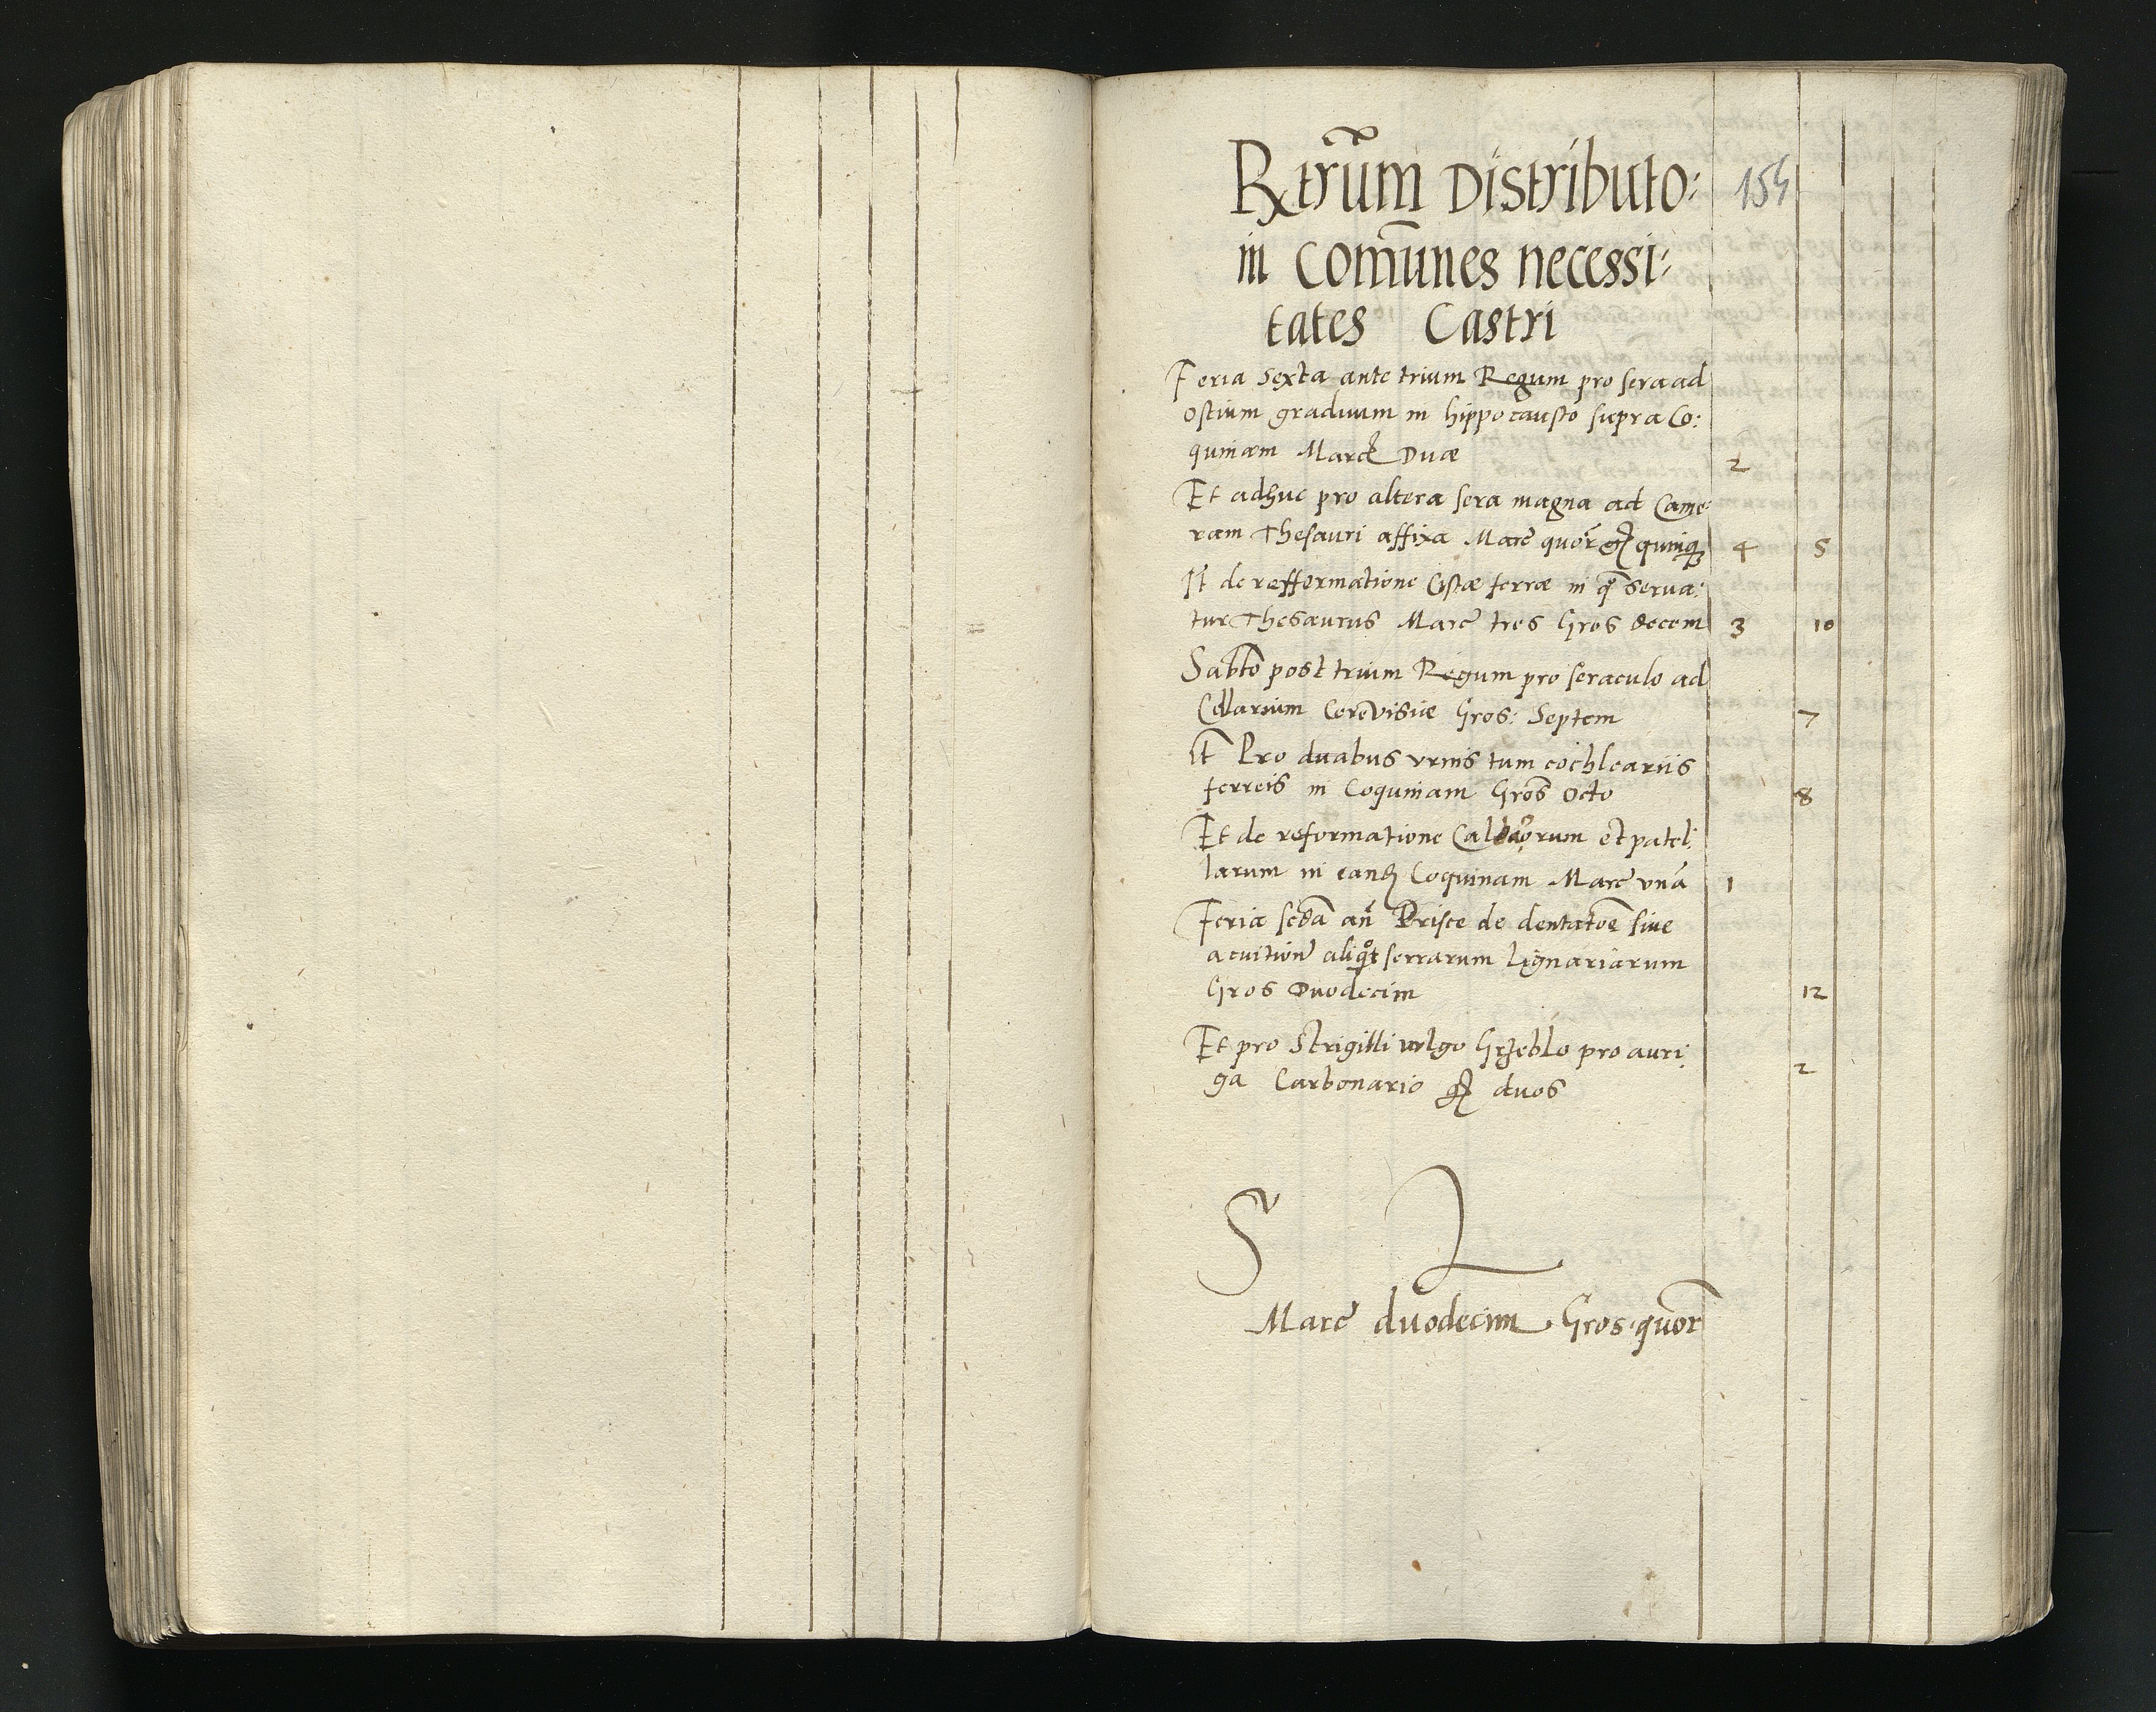 Rxtrũm Distributo: 154
in Com̃unes necessi:
tates Castri
Feria Sexta ante trium Regum pro sera ad
ostium graduum in hippocausto supra Co:
quinam Marc Duæ 2
Et adhuc pro altera sera magna ad Came:
ram Thesauri affixa Marc quor̃ gr quinq 4 5
It de refformatione Cistæ ferræ in qua serva:
tur Thesaurus Marc tres Gros decem 3 10
Sabto post trium Regum pro seraculo ad
Cellarium Cerevisiæ Gros: Septem 7
It Pro duabus urnis tum cochleariis
ferreis in Coquinam Gros Octo 8
Et de reformatione Caldarorum et patel:
larum in eand Coquinam Marc unã 1
Feria scda añ Prisce de dentatõe sive
acuitione aliqot serrarum lignariarum
Gros Duodecim 12
Et pro Strigilli vulgo Grzeblo pro auri:
ga Carbonario gr duos 2
S
Marc duodecim Gros quor̃